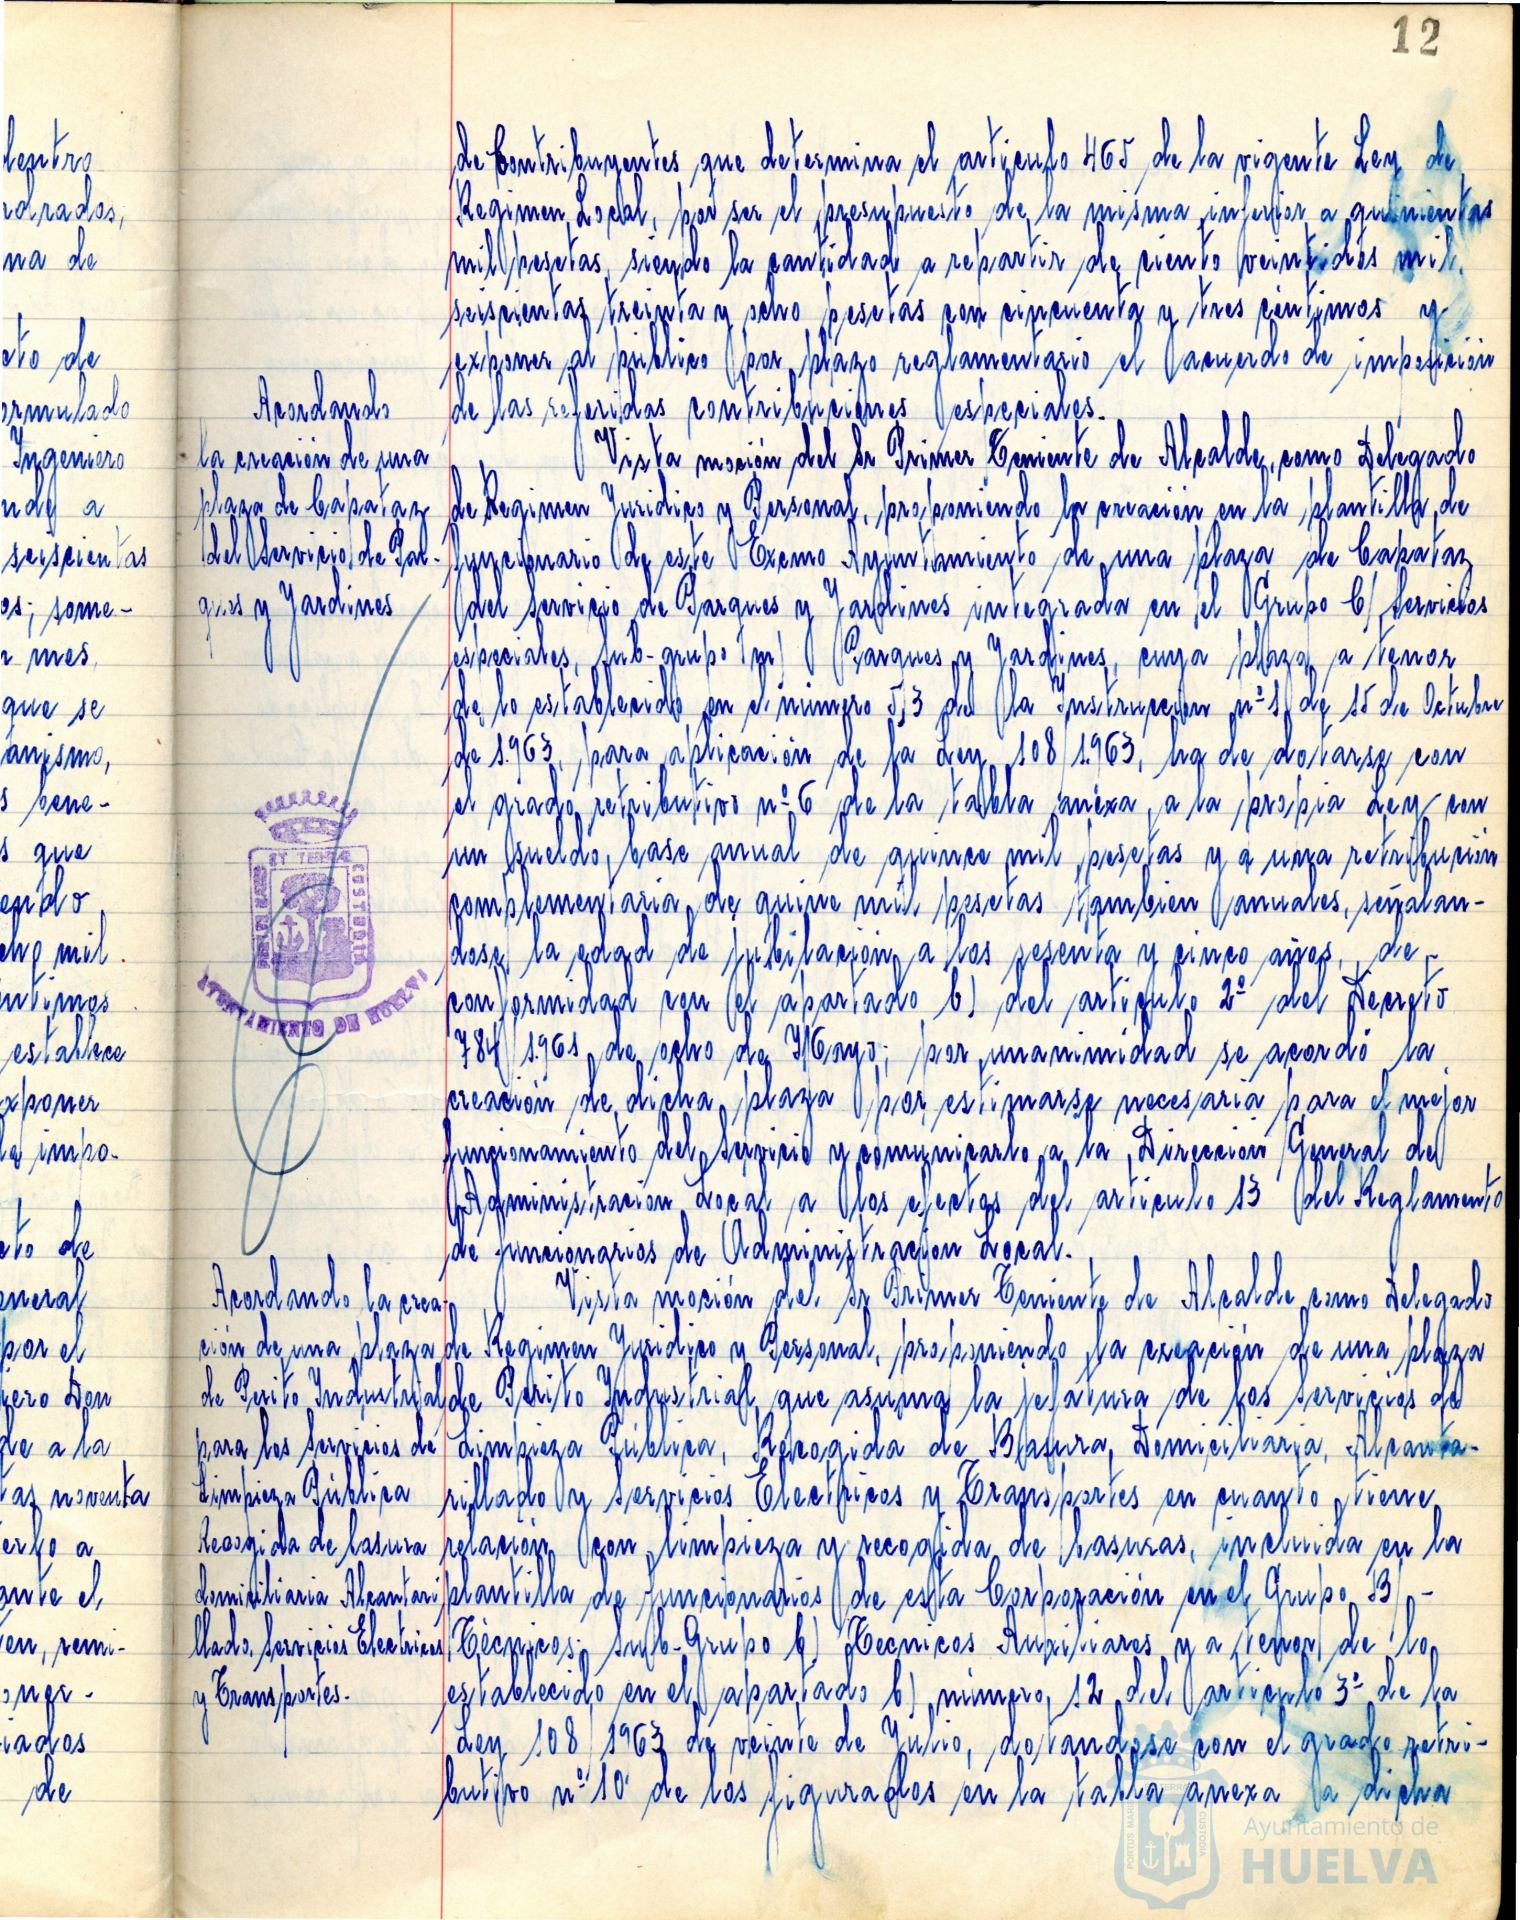 12
de Contribuyentes que determina el articulo 465 de la vigente Ley de
Regimen Local, por ser el presupuesto de la misma inferior a quinientas
mil pesetas, siendo la cantidad a repartir de ciento veintidós mil
seiscientas treinta y ocho pesetas con cincuenta y tres céntimos y
exponer al público por plazo reglamentario el acuerdo de imposición
de las referidas contribuciones especiales.
Acordando
la creación de una
plaza de Capataz
del Servicio de Par-
ques y Jardines
Vista moción del Sr Primer Teniente de Alcalde, como Delegado
de Regimen Juridico y Personal, proponiendo la creación en la plantilla de
funcionario de este Excmo Ayuntamiento de una plaza de Capataz
del Servicio de Parques y Jardines integrada en el Grupo C) Servicios
especiales, Sub-grupo m) Parques y Jardines, cuya plaza a tenor
de lo establecido en el número 5,3 de la Instruccion nº 1 de 15 de Octubre
de 1.963, para aplicación de la Ley 108/1.963, ha de dotarse con
el grado retributivo nº 6 de la tabla anexa a la propia Ley con
un sueldo base anual de quince mil pesetas y a una retribución
complementaria de quince mil pesetas tambien anuales, señalan-
dose la edad de jubilación a los sesenta y cinco años, de
conformidad con el apartado b) del articulo 2º del Decreto
784/1.961 de ocho de Mayo; por unanimidad se acordó la
creación de dicha plaza por estimarse necesaria para el mejor
funcionamiento del Servicio y comunicarlo a la Dirección General de
Administración Local a los efectos del articulo 13 del Reglamento
de funcionarios de Administracion Local.
AYUNTAMIENTO DE HUELVA
Acordando la crea-
ción de una plaza
de Perito Industrial
para los Servicios de
Limpieza Pública
Recogida de basura
domiciliaria Alcantari
llado, Servicios Electricos
y Transportes.
Vista moción del Sr Primer Teniente de Alcalde como Delegado
de Regimen Juridico y Personal, proponiendo la creación de una plaza
de Perito Industrial que asuma la jefatura de los Servicios de
Limpieza Pública, Recogida de Basura, Domiciliaria, Alcanta-
rillado y Servicios Electricos y Transportes en cuanto tiene
relación con limpieza y recogida de basuras, incluida en la
plantilla de funcionarios de esta Corporación en el Grupo B) -
Técnicos, Sub-Grupo b) Tecnicos Auxiliares y a tenor de lo
establecido en el apartado b) número 12 del articulo 3º de la
Ley 108/1963 de veinte de Julio, dotandose con el grado retri-
butivo nº 10 de los figurados en la tabla anexa a dicha
Ayuntamiento de
HUELVA
dentro
na de
Ingeniero
seiscientas
que se
establece
exponer
de impo-
por el
Don
de a la
noventa
de